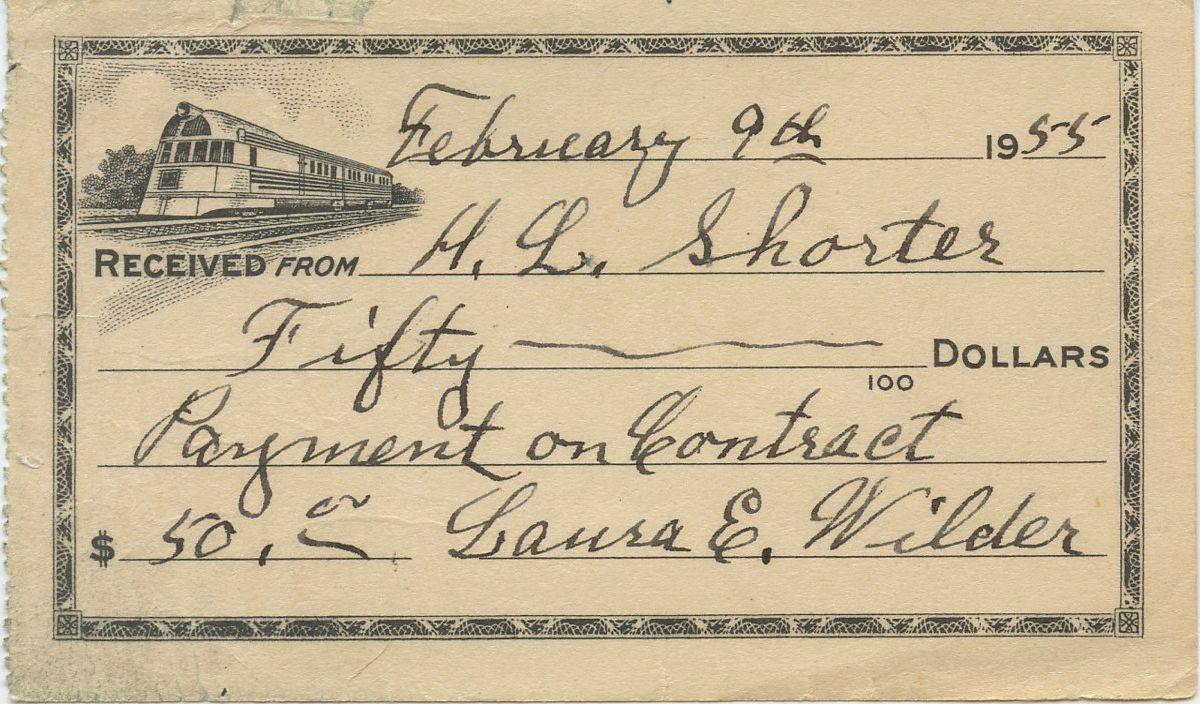 February 9th 1955
RECEIVED FROM H. L. Shorter
Fifty DOLLARS
100
Payment on Contract
$ 50.00 Laura E. Wilder